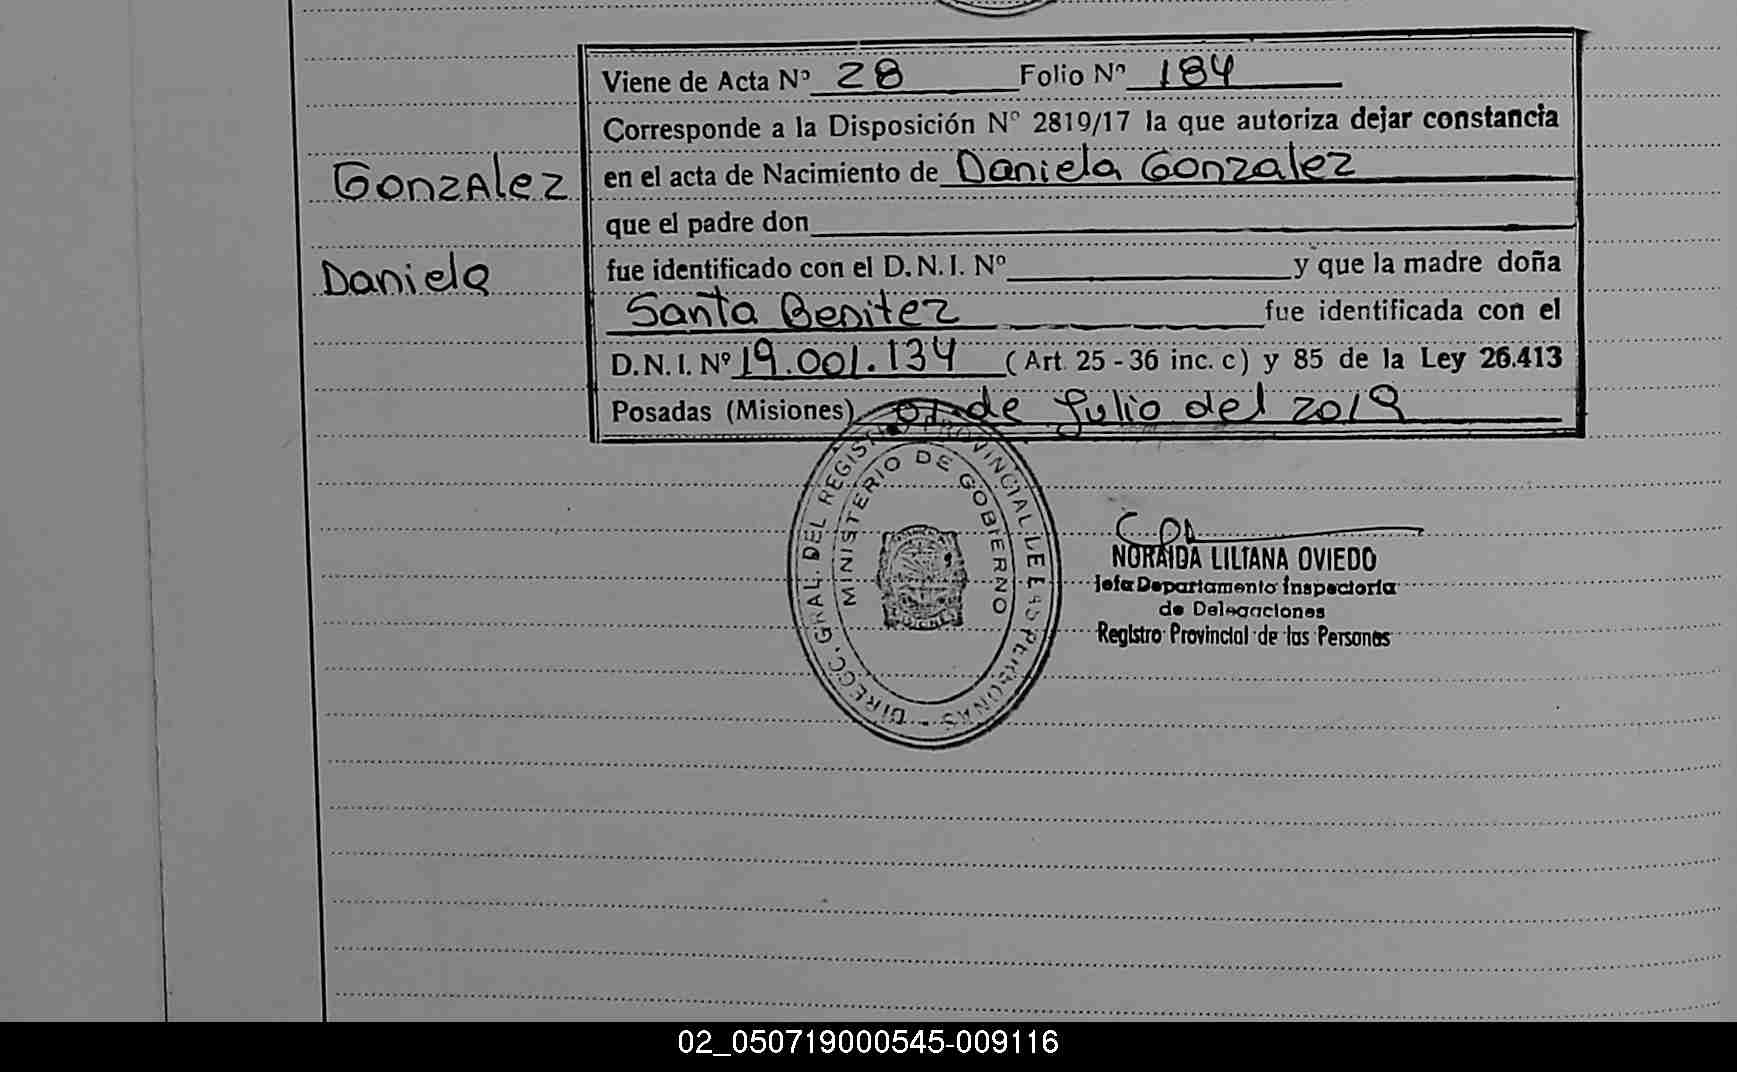 Viene de Acta Nº 28 Folio Nº 184
Corresponde a la Disposición Nº 2819/17 la que autoriza dejar constancia
Gonzalez
en el acta de Nacimiento de Daniela Gonzalez
que el padre don
Daniela
fue identificado con el D.N.I. Nº y que la madre doña
Santa Benitez fue identificada con el
D.N.I. Nº 19.001.134 (Art. 25 - 36 inc. c) y 85 de la Ley 26.413
Posadas (Misiones) 01 de Julio del 2019
DIRECC. GRAL. DEL REGISTRO PROVINCIAL DE LAS PERSONAS
MINISTERIO DE GOBIERNO
NORAIDA LILIANA OVIEDO
Jefa Departamento Inspectoria
de Delegaciones
Registro Provincial de las Personas
02_050719000545-009116